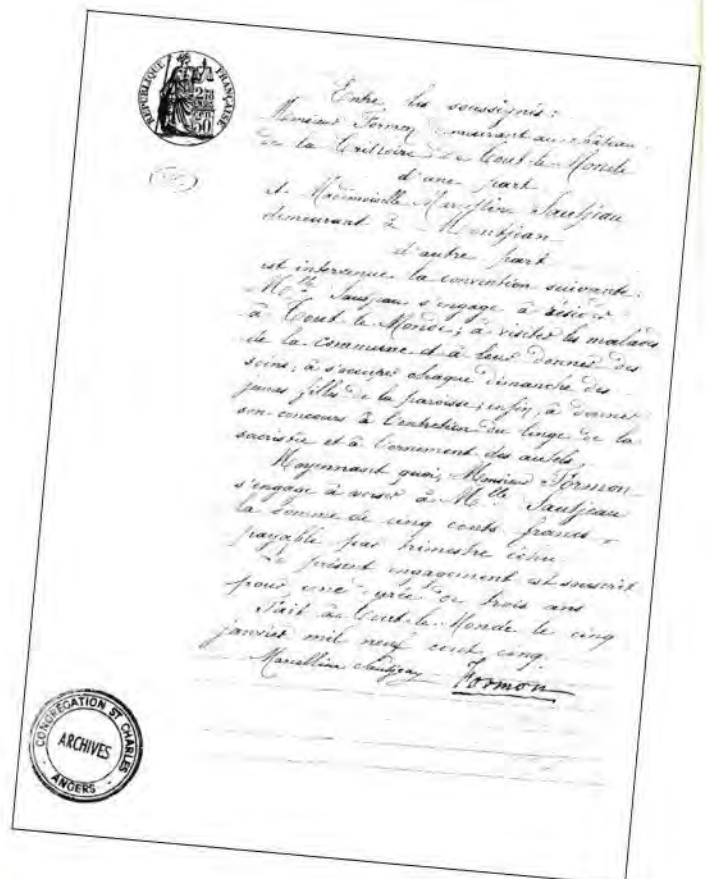 REPUBLIQUE FRANÇAISE
Entre les soussignés:
Monsieur Formon demeurant au château
de la Crilloire de Tout-le-Monde
d'une part
et Mademoiselle Marcelline Sautjeau
demeurant à Montjean
d'autre part
est intervenue la convention suivante:
Mlle Sautjeau s'engage à résider
à Tout-le-Monde; à visiter les malades
de la commune et à leur donner des
soins; à s'occuper chaque dimanche des
jeunes filles de la paroisse; enfin, à donner
son concours à l'entretien du linge de la
sacristie et à l'ornement des autels.
Moyennant quoi, Monsieur Formon
s'engage à verser à Mlle Sautjeau
la somme de cinq cents francs
payable par trimestre échu.
Le présent engagement est souscrit
pour une durée de trois ans
Fait à Tout-le-Monde le cinq
janvier mil neuf cent cinq.
Marcelline Sautjeau Formon
CONGREGATION ST CHARLES
ARCHIVES
ANGERS